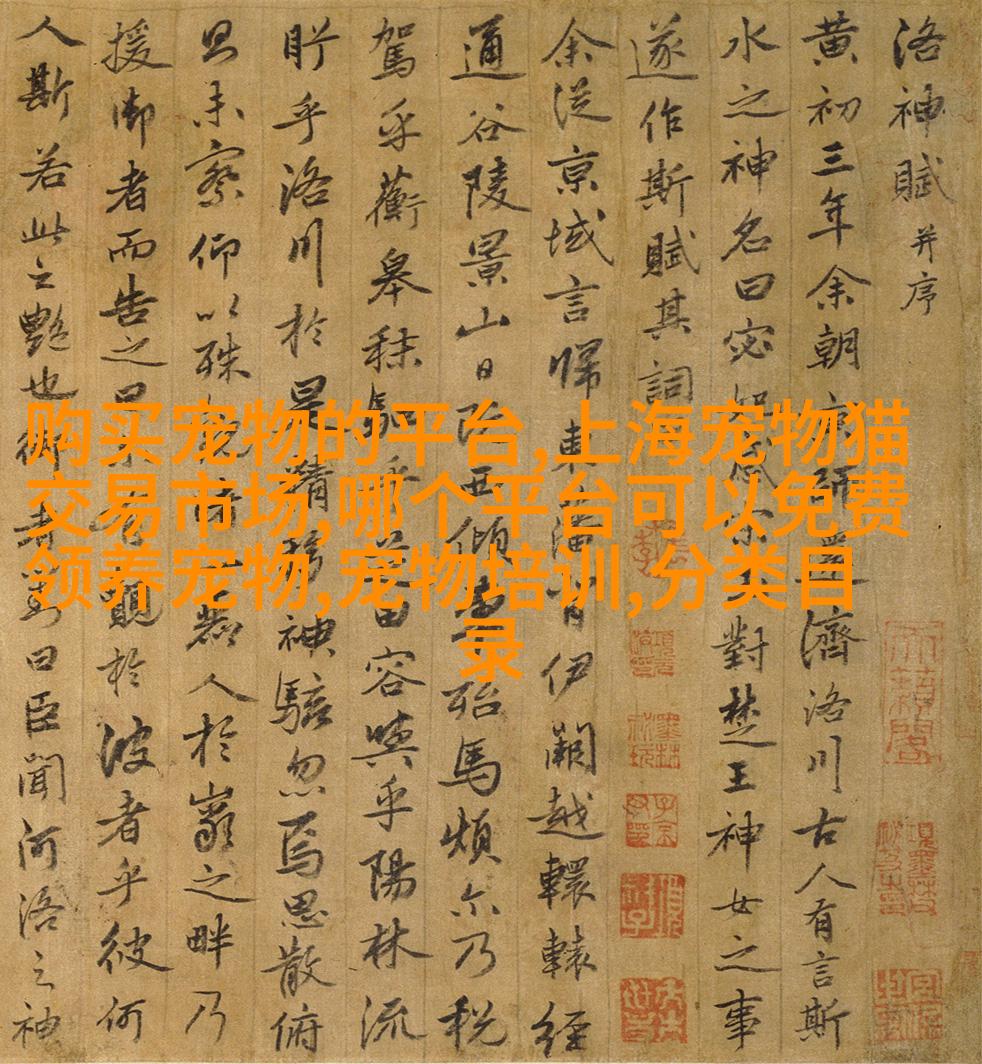 购买宠物的平台,上海宠物猫
交易市场,哪个平台可以免费
领养宠物,宠物培训,分类目
录
洛神賦并序
黃初三年余朝京師還濟洛川古人有言斯
水之神名曰宓妃感宋玉對楚王神女之事
遂作斯賦其詞
余從京域言歸東藩背伊闕越轘轅經
通谷陵景山日既西傾車殆馬煩尔乃稅
駕乎蘅皋秣駟乎芝田容與乎陽林流
眄乎洛川於是精移神駭忽焉思散俯
則未察仰以殊觀睹一麗人於巖之畔乃
援御者而告之曰尔有覿於彼者乎彼何
人斯若此之艷也御者對曰臣聞河洛之神